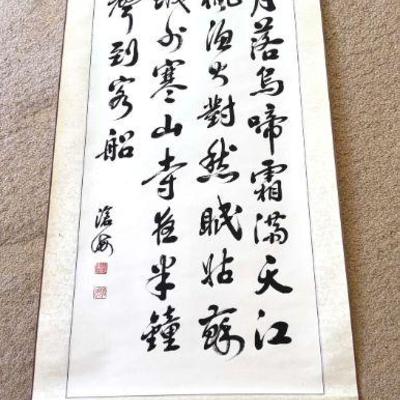 月落烏啼霜滿天江
楓漁火對愁眠姑蘇
城外寒山寺夜半鐘
聲到客船
滄海